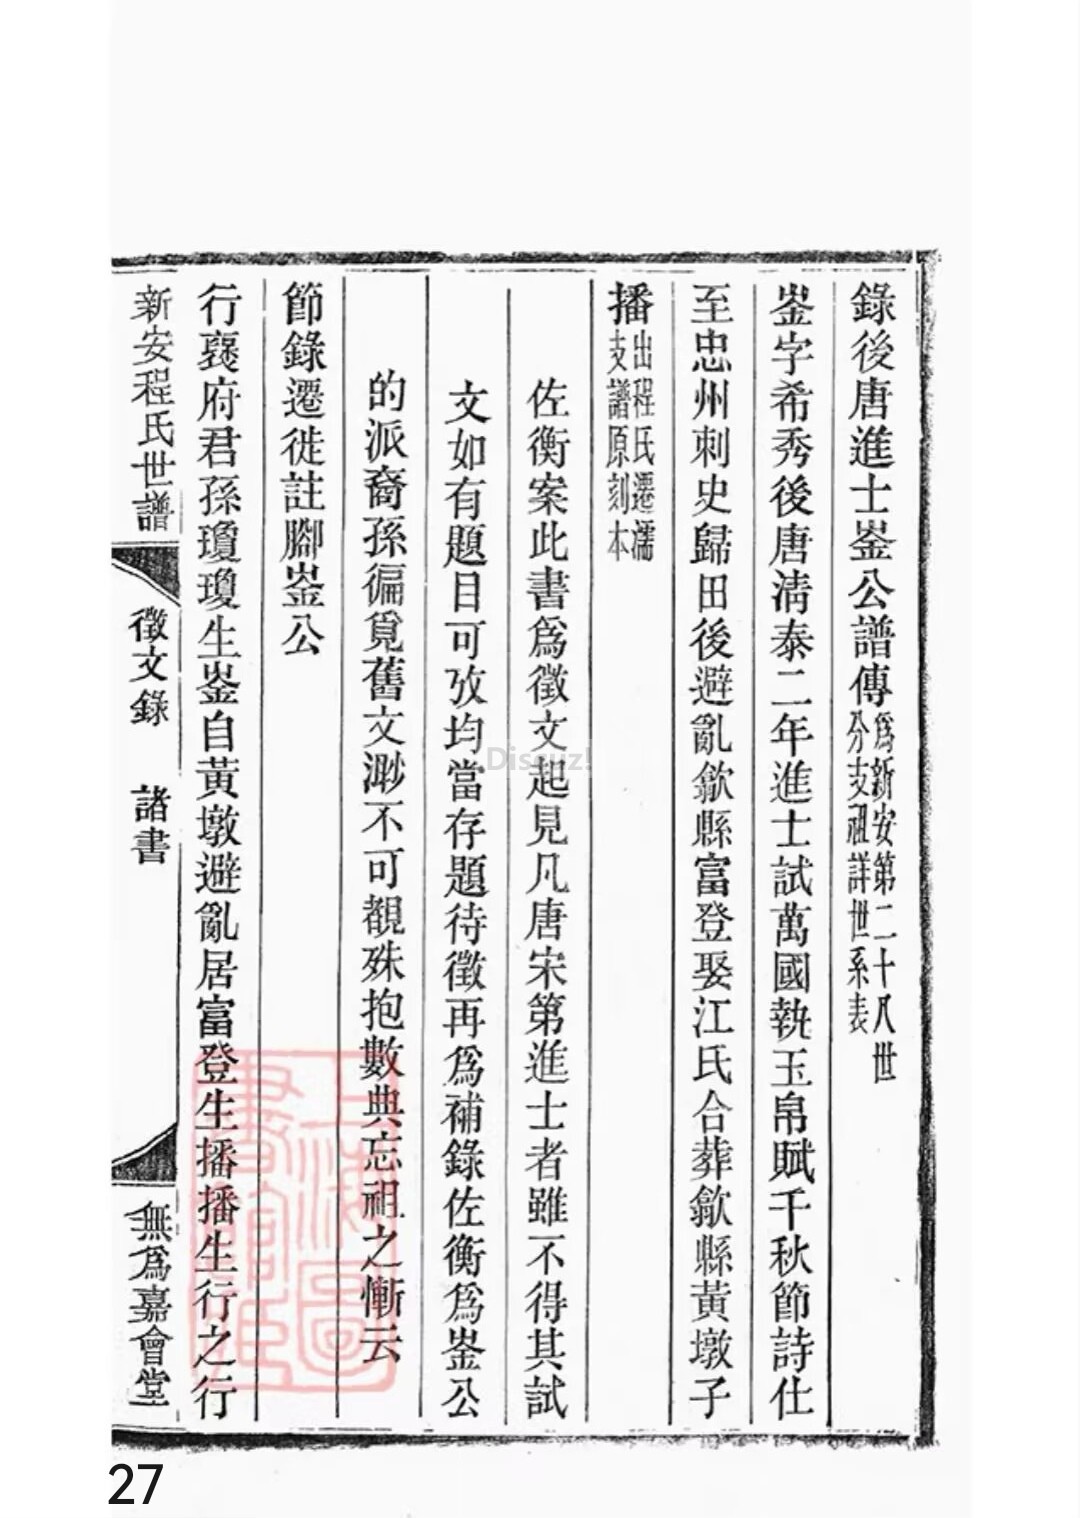 錄後唐進士崟公譜傳爲新安第二十八世分支祖詳世系表
崟字希秀後唐清泰二年進士試萬國執玉帛賦千秋節詩仕
至忠州刺史歸田後避亂歙縣富登娶江氏合葬歙縣黃墩子
播出程氏遷濡支譜原刻本
佐衡案此書爲徵文起見凡唐宋第進士者雖不得其試
文如有題目可攷均當存題待徵再爲補錄佐衡爲崟公
的派裔孫徧覓舊文渺不可覩殊抱數典忘祖之慚云
節錄遷徙註腳崟公
行襃府君孫瓊瓊生崟自黃墩避亂居富登生播播生行之行
新安程氏世譜
徵文錄 諸書
無爲嘉會堂
上海圖書館藏
Discuz!
27